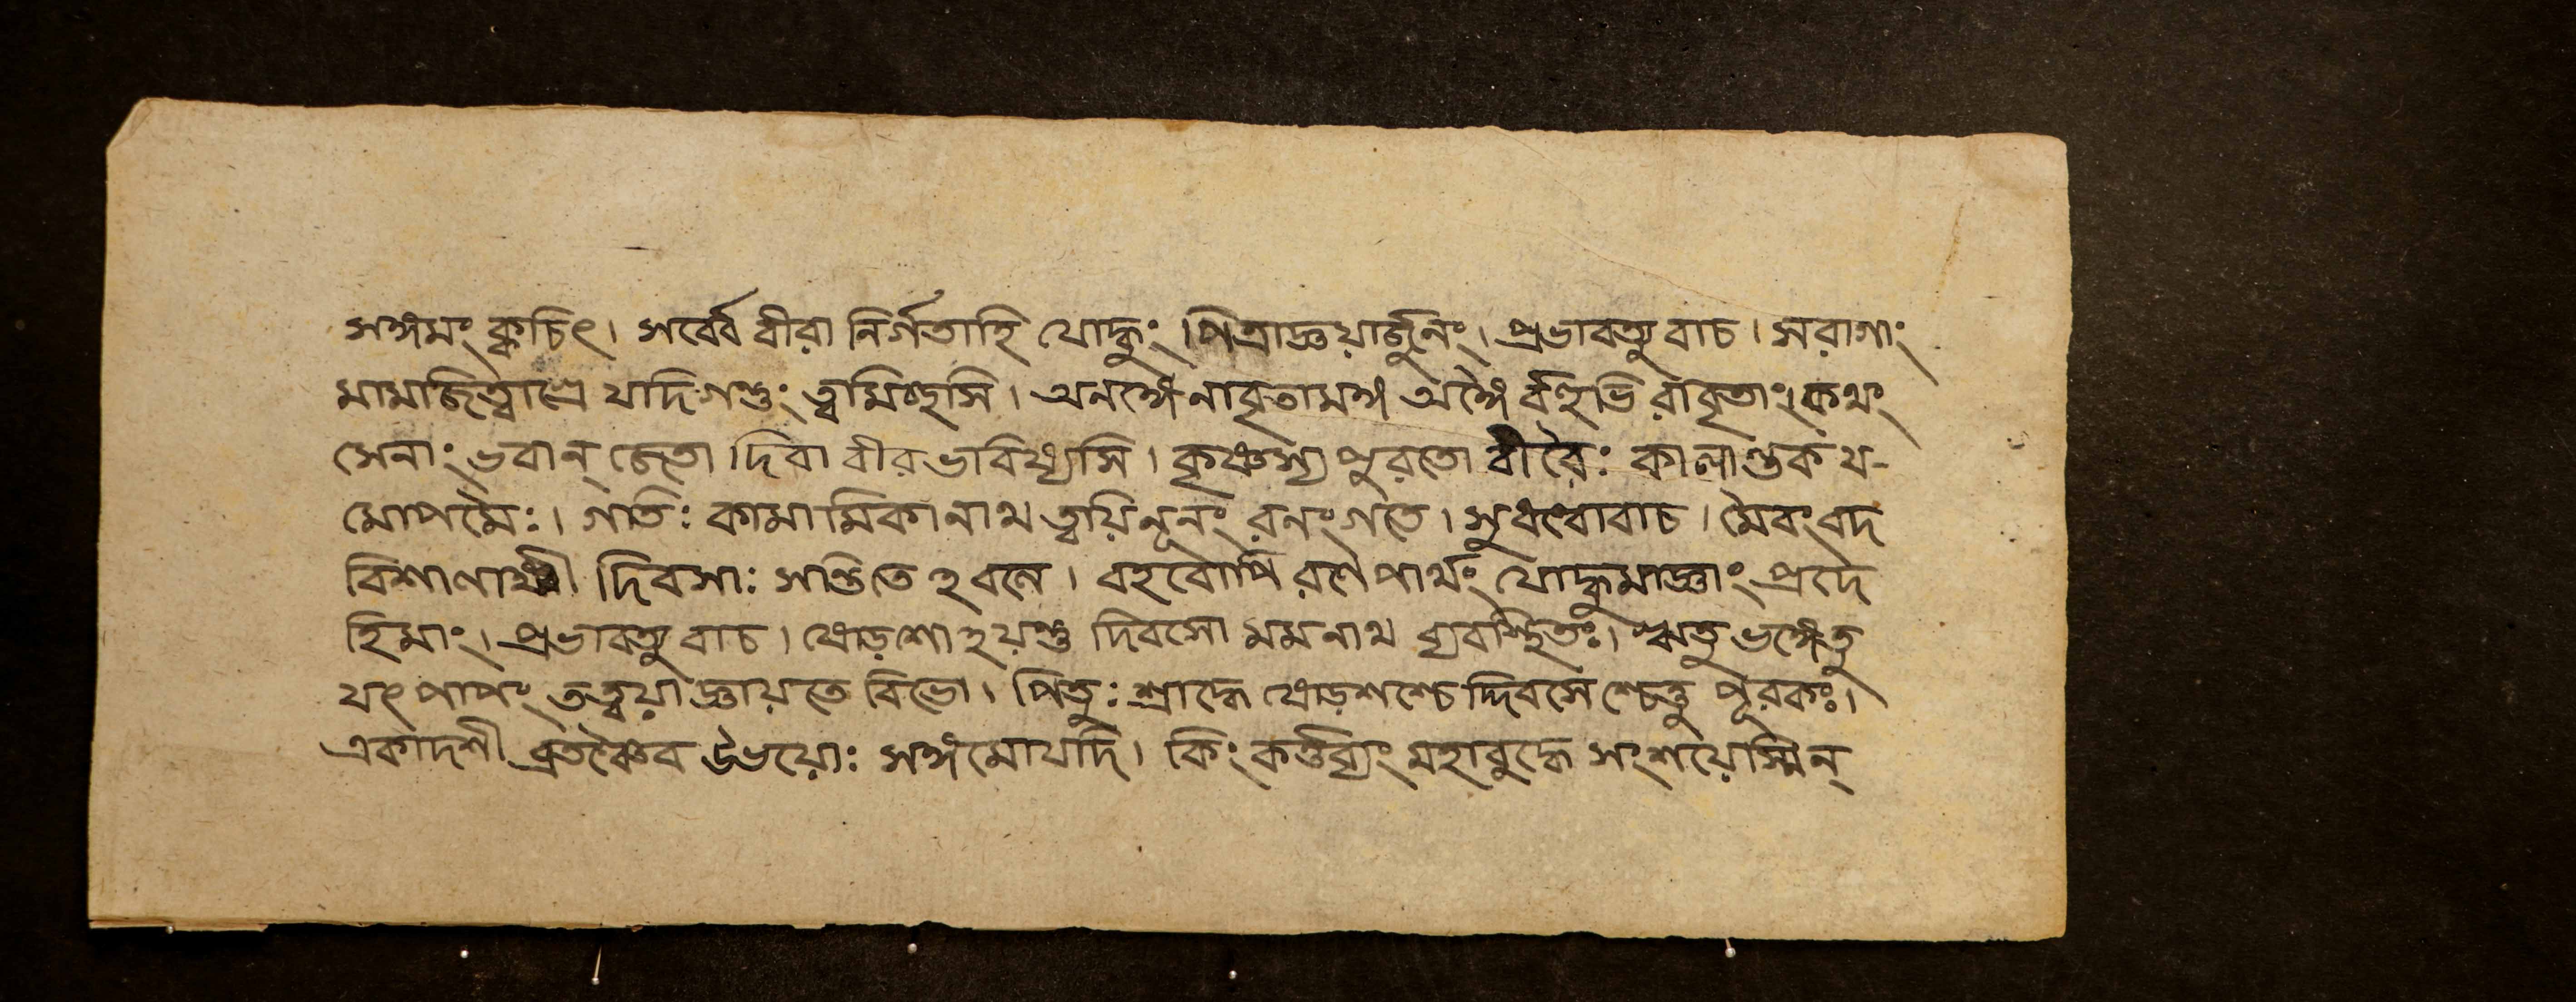 সঙ্গমং ক্বচিৎ। সর্ব্বে বীরা নির্গতাহি যোদ্ধুং।পিত্রাজ্ঞয়ার্জুনং। প্রভাবত্যুবাচ। সরাগাং
মামাজিত্বাশ্রে যাদি গন্তুং ত্বামিচ্ছসি। অনঙ্গেনাকৃতামঙ্গ অঙ্গৈর্বহুভিরাকৃতাং।কথং
সেনাং ভবান্ জেতা দিবা বীর ভাবিষ্যসি। কৃষ্ণস্য পুরতো বীরৈঃ কালান্তক য-
মোপমৈঃ। গতিঃ কামামিকানাথ ত্বয়ি নূনং রনংগতে। সুধন্বোবাচ। মৈবংবদ
বিশালাক্ষী দিবসাঃ সান্তিতে হবলে। বহবোপি রণেপার্থং যোদ্ধুমাজ্ঞাং প্রদে
হিমাং। প্রভাবত্যুবাচ। ষোড়শোহয়ন্তু দিবসো মমনাথ ব্যবস্থিতঃ। ঋতু ভঙ্গেতু
যৎ পাপং তত্ত্বয়া জ্ঞায়তে বিভো। পিতুঃ শ্রাদ্ধে ষোড়শশ্চে দ্দিবসে শ্চেত্তু পূরকঃ।
একাদশী ব্রতঞ্চৈব উভয়োঃ সঙ্গমোযদি। কিং কর্ত্তব্যং মহাবুদ্ধে সংশয়েস্মিন্